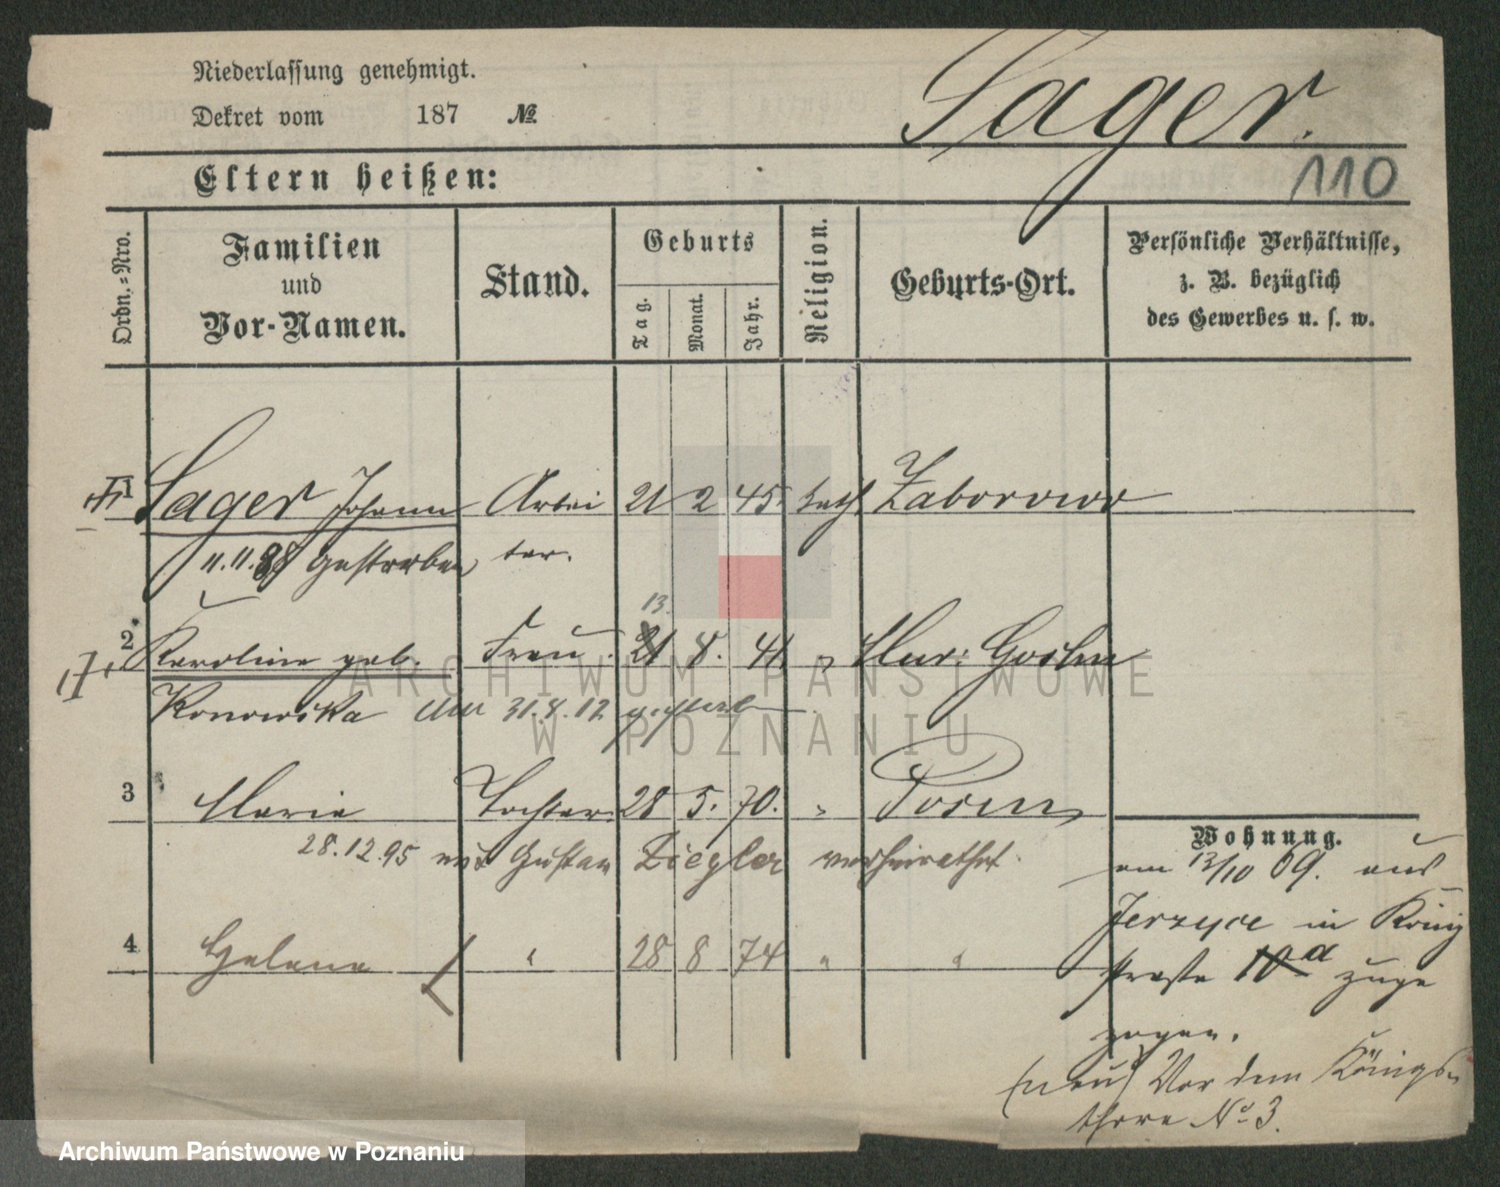 Niederlassung genehmigt.
Dekret vom 187 №
Sager.
110
Eltern heißen:
Ordn.-Nro.
Familien
und
Vor-Namen.
Stand.
Geburts
Tag.
Monat.
Jahr.
Religion.
Geburts-Ort.
Persönliche Verhältnisse,
z. B. bezüglich
des Gewerbes u. s. w.
1 Sager Johann Arbei 21 2 45. kath. Zaborowo
11.11.88 gestorben ter.
13.
2 Karoline geb. Frau. 21 8. 41. " Mur: Goslin
Konowska am 31.8.12 gestorb
3 Marie Tochter. 28 5. 70. " Posen
28.12.95 mit Gustav Ziegler verheirathet.
4 Helene " 28 8 74 " "
Wohnung.
am 12/10 09. aus
Jerzyce in König
straße 10a zuge
zogen.
(neu) Vor dem Königs-
thore No 3.
ARCHIWUM PAŃSTWOWE
W POZNANIU
Archiwum Państwowe w Poznaniu